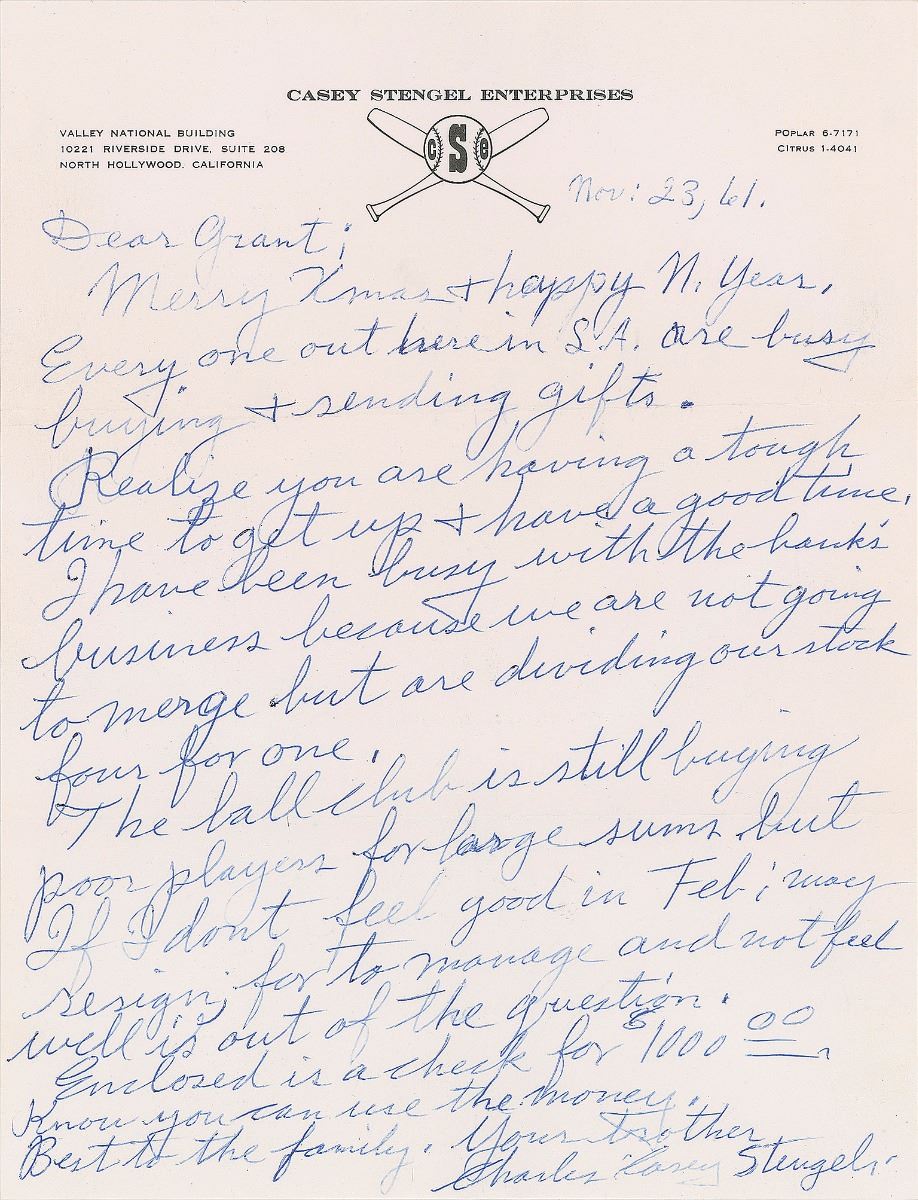 CASEY STENGEL ENTERPRISES
VALLEY NATIONAL BUILDING
10221 RIVERSIDE DRIVE, SUITE 208
NORTH HOLLYWOOD, CALIFORNIA
C S E
POPLAR 6-7171
CITRUS 1-4041
Nov: 23, 61.
Dear Grant;
Merry Xmas + happy N. Year.
Every one out here in L.A. are busy
buying + sending gifts.
Realize you are having a tough
time to get up + have a good time.
I have been busy with the bank's
business because we are not going
to merge but are dividing our stock
four for one.
The ball club is still buying
poor players for large sums but
If I dont feel good in Feb; may
resign; for to manage and not feel
well is out of the question.
Enclosed is a check for $1000 00
Know you can use the money.
Best to the family. Your brother
Charles Casey Stengel.